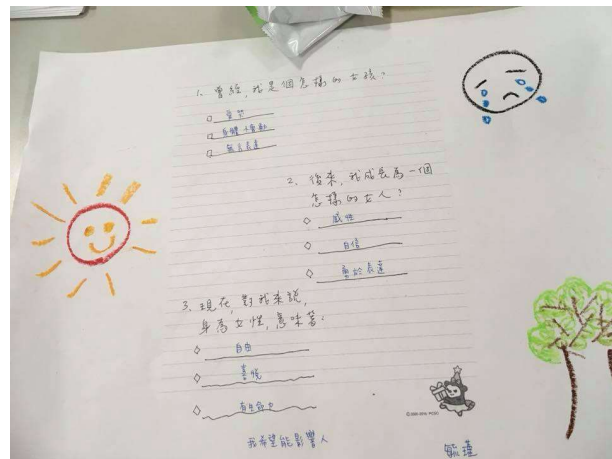 1. 曾經，我是個怎樣的女孩？
2. 後來，我成長為一個
怎樣的女人？
感性
自信
勇於表達
3. 現在，對我來說，
身為女性，意味著：
自由
喜悅
有生命力
我希望能影響人
毓瑾